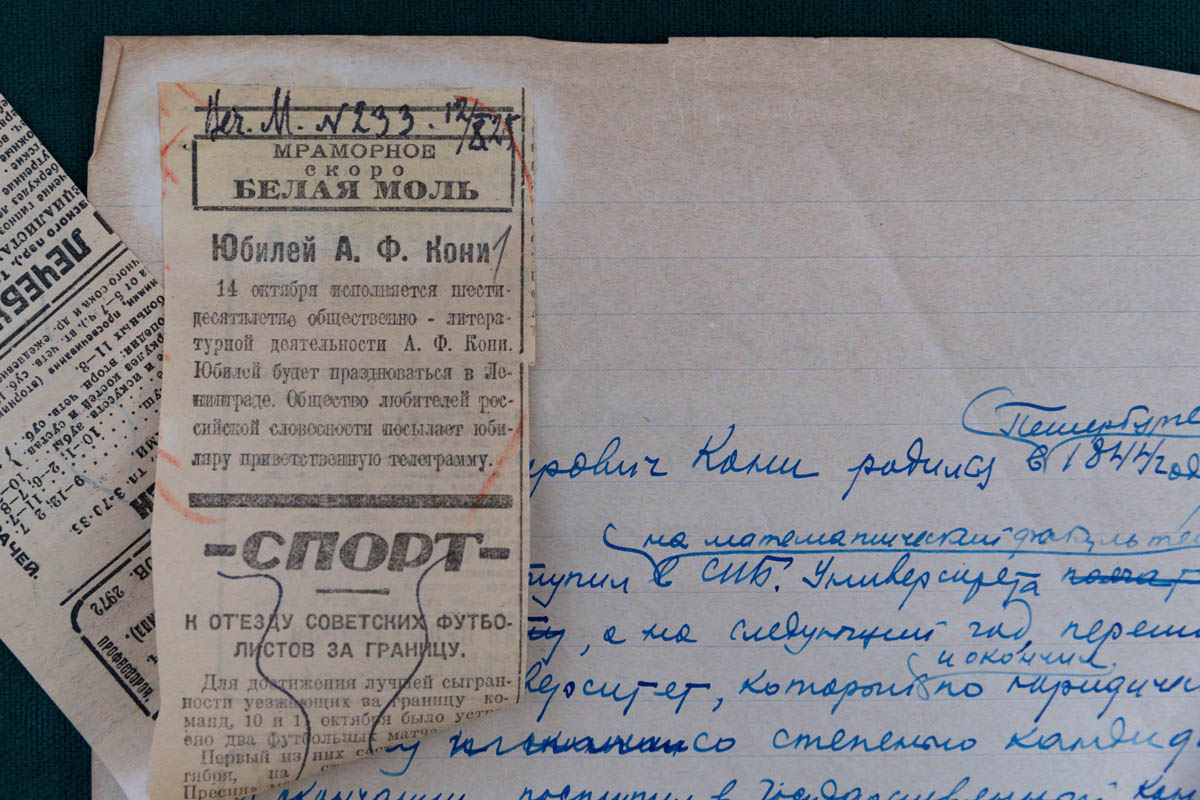 Веч. М. N 233. 12/X 25
МРАМОРНОЕ
скоро
БЕЛАЯ МОЛЬ
Юбилей А. Ф. Кони
14 октября исполняется шести-
десятилетие общественно - литера-
турной деятельности А. Ф. Кони.
Юбилей будет праздноваться в Ле-
нинграде. Общество любителей рос-
сийской словесности посылает юби-
ляру приветственную телеграмму.
-СПОРТ-
К ОТ'ЕЗДУ СОВЕТСКИХ ФУТБО-
ЛИСТОВ ЗА ГРАНИЦУ.
Для достижения лучшей сыгран-
ности уезжающих за границу ко-
манд, 10 и 11 октября было устр
ено два футбольных матча
Первый из них сос
тября, на
Пресня
Петербурге
рович Кони родился в 1844 год
на математический факультет
тупил в СПБ. Университета
, а на следующий год, переш
и окончил
верситет, который по юридичес
со степенью кандид
поступил в Государственный Кон
ЛЕЧЕБН
больных 11-8.
тл 3-70-35
2972
ПРОФЕССОРОВ.
АЧЕЙ.